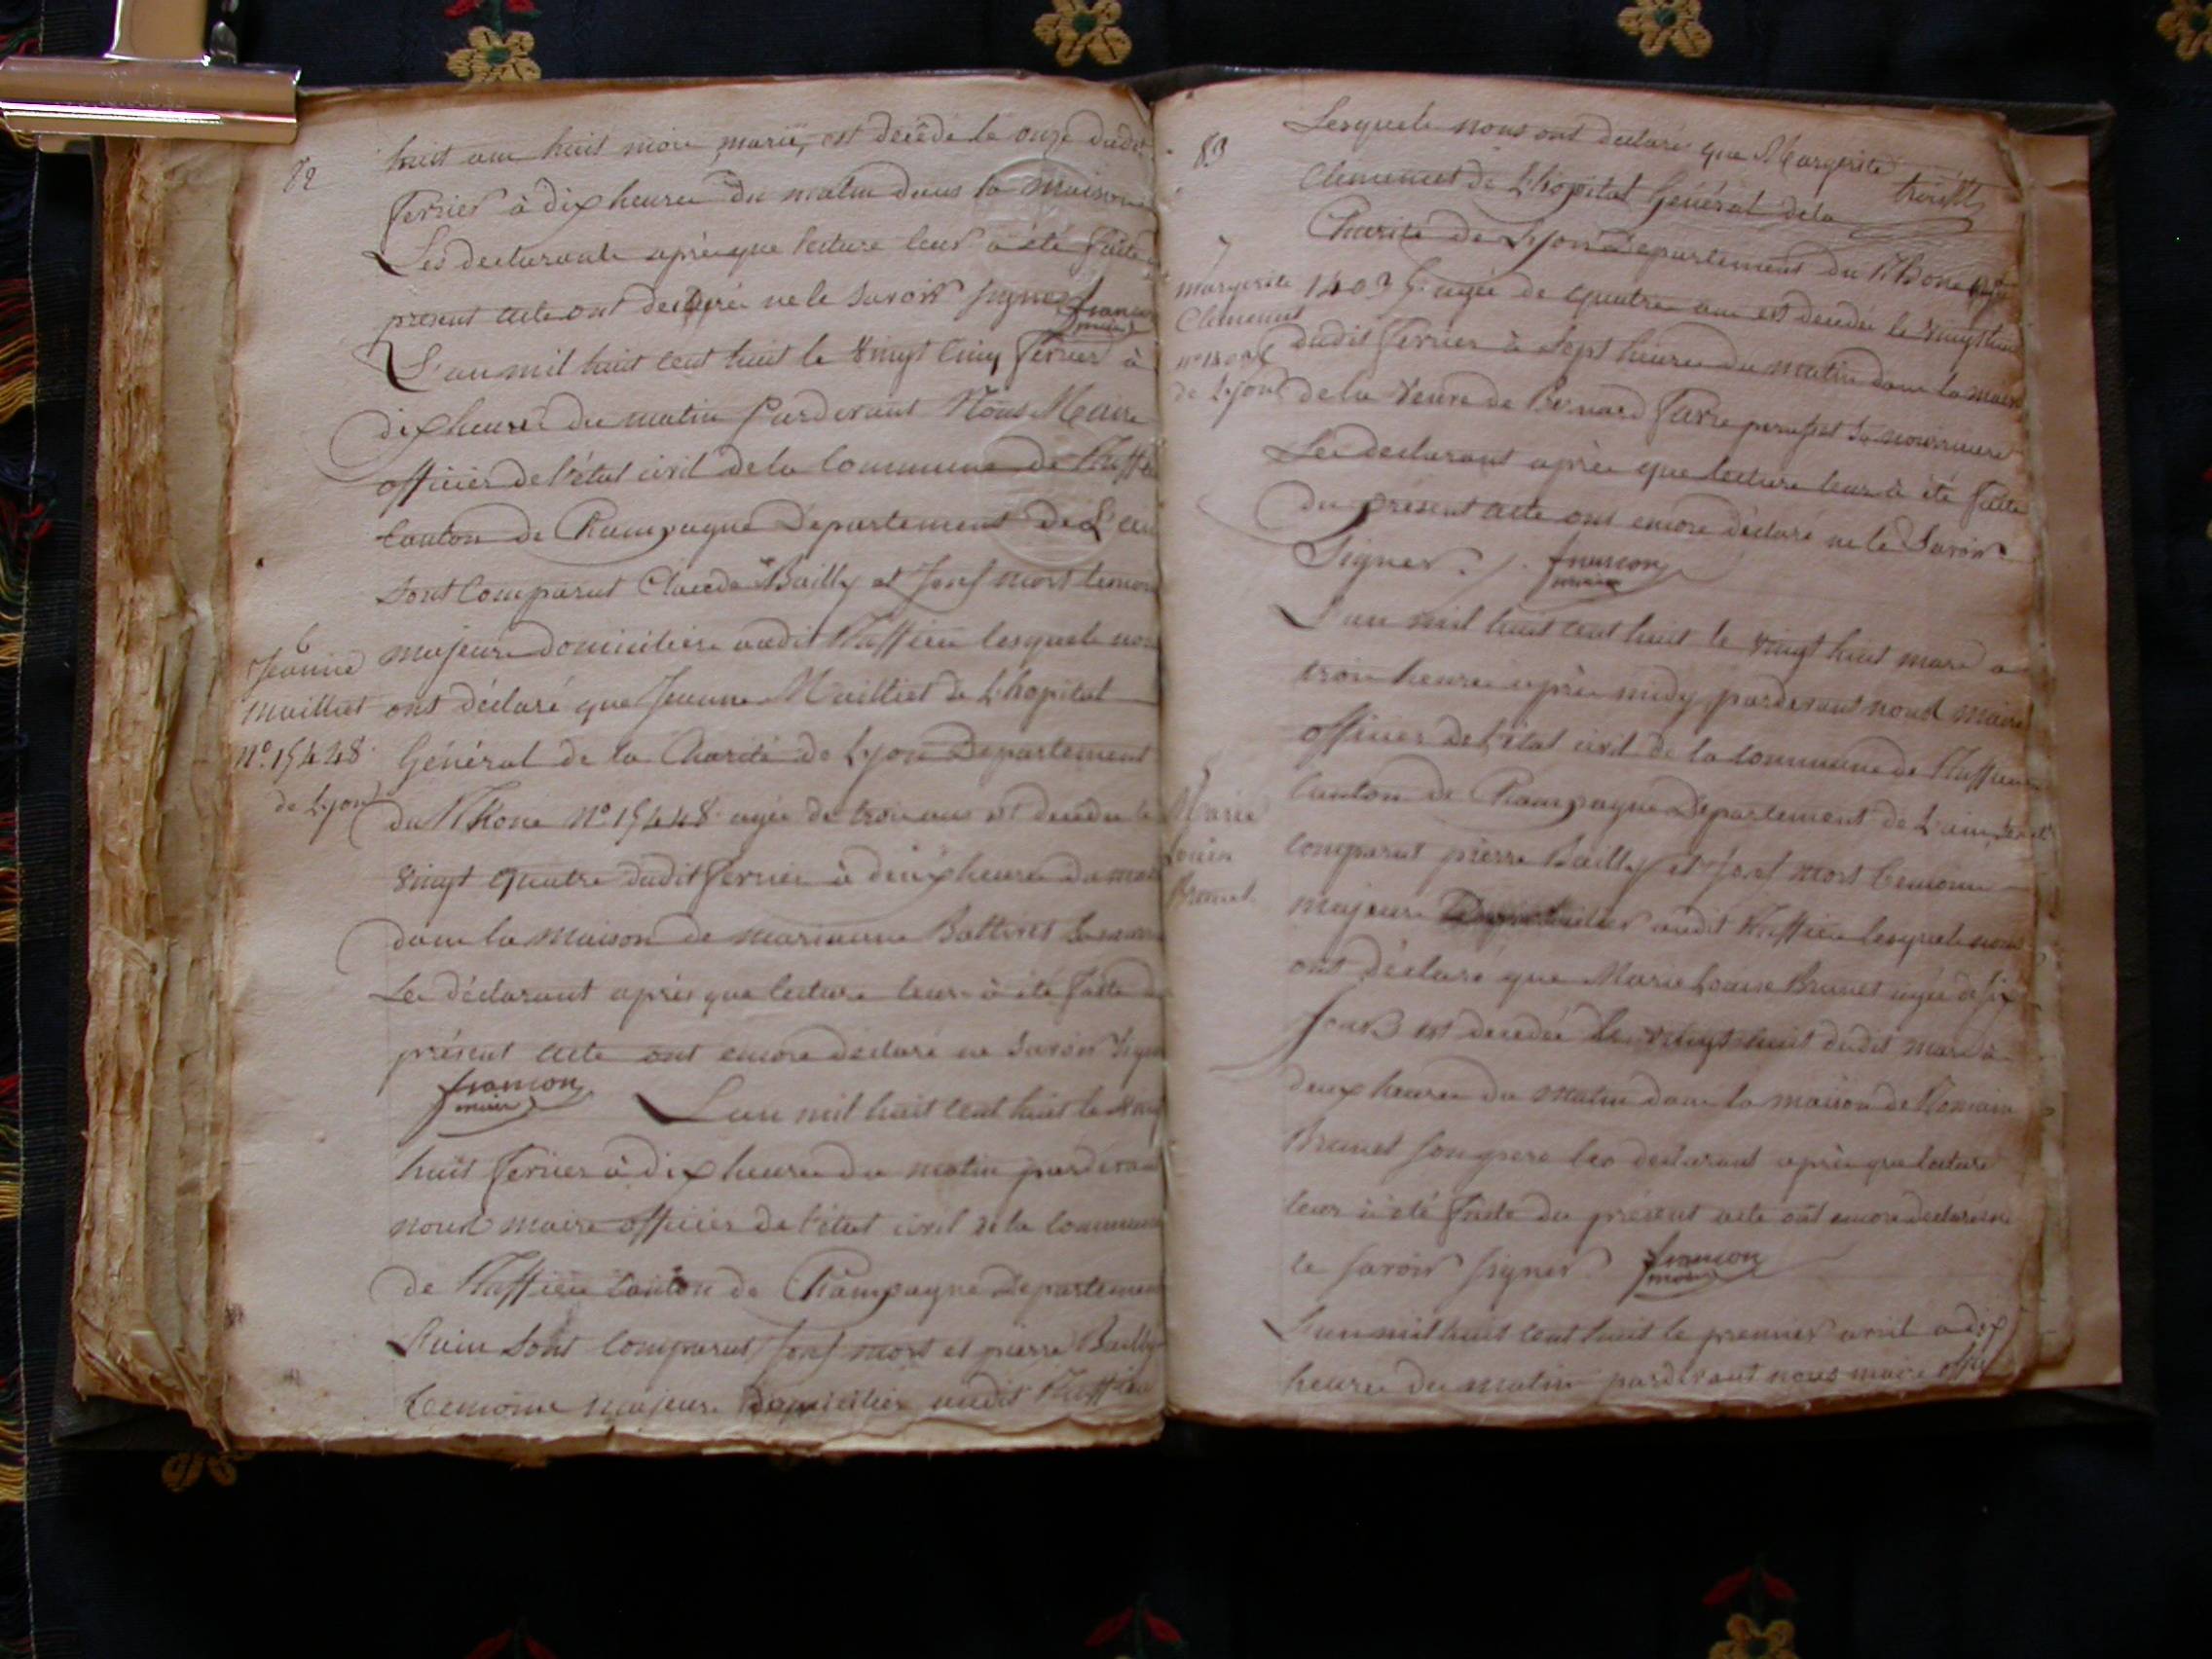 82
huit ans huit mois, marié, est decêdé le onze dudit
fevrier à dix heures du matin dans sa maison
Les declarants après que lecture leur a été faite
présent acte ont declaré ne le savoir signer françon
maire
L'an mil huit cent huit le vingt cinq fevrier à
dix heures du matin pardevant Nous Maire
officier de l'état civil de la commune de Ruffieu
canton de Champagne Departement de L'ain
sont Comparut Claude Bailly et Josef mort temoins
6
Jeanne
Maillet
n.º 15448
de Lyon
majeurs domiciliers audit Ruffieu lesquels nous
ont déclaré que Jeanne Mailliet de L'hopital
Général de la Charité de Lyon Departement
du Rhone Nº 15448 agée de trois ans est decedée le
vingt quatre dudit fevrier à deux heures du matin
dans la maison de marianne
Les déclarant après que lecture leur à été faite du
présent acte ont encore declaré ne savoir signer
françon
maire
L'an mil huit cent huit le vingt
huit fevrier à dix heures du matin pardevant
nous maire officier de l'état civil de la commune
de Ruffieu canton de Champagne Departement
L'ain sont comparut Josef mort et pierre Bailly
temoins majeurs domicilier audit Ruffieu
83
Lesquels nous ont declaré que Margerite
Clemencet de L'hopital Général de la
Charité de Lyon Departement du Rhone
7
margerite
Clemencet
de Lyon
agée de quatre ans est decedée le vingt huit
dudit fevrier à sept heures du matin dans la maison
de la veuve de Bernard
Les declarant après que lecture leur à été faite
du présent acte ont encore déclaré ne le savoir
signer. françon
maire
L'an mil huit cent huit le vingt huit mars a
trois heures après midy pardevant nous maire
officier de l'état civil de la commune de Ruffieu
canton de Champagne Departement de L'ain
Marie
Louise
Brunet
comparut pierre Bailly et Josef mort temoins
majeurs domicilier audit Ruffieu lesquels nous
ont déclaré que Marie Louise Brunet agée de six
jours est decedée le vingt huit dudit mars à
deux heures du matin dans la maison de Romain
Brunet son pere les declarant après que lecture
leur à été faite du présent acte ont encore declaré ne
le savoir signer françon
maire
L'an mil huit cent huit le premier avril a dix
heures du matin pardevant nous maire